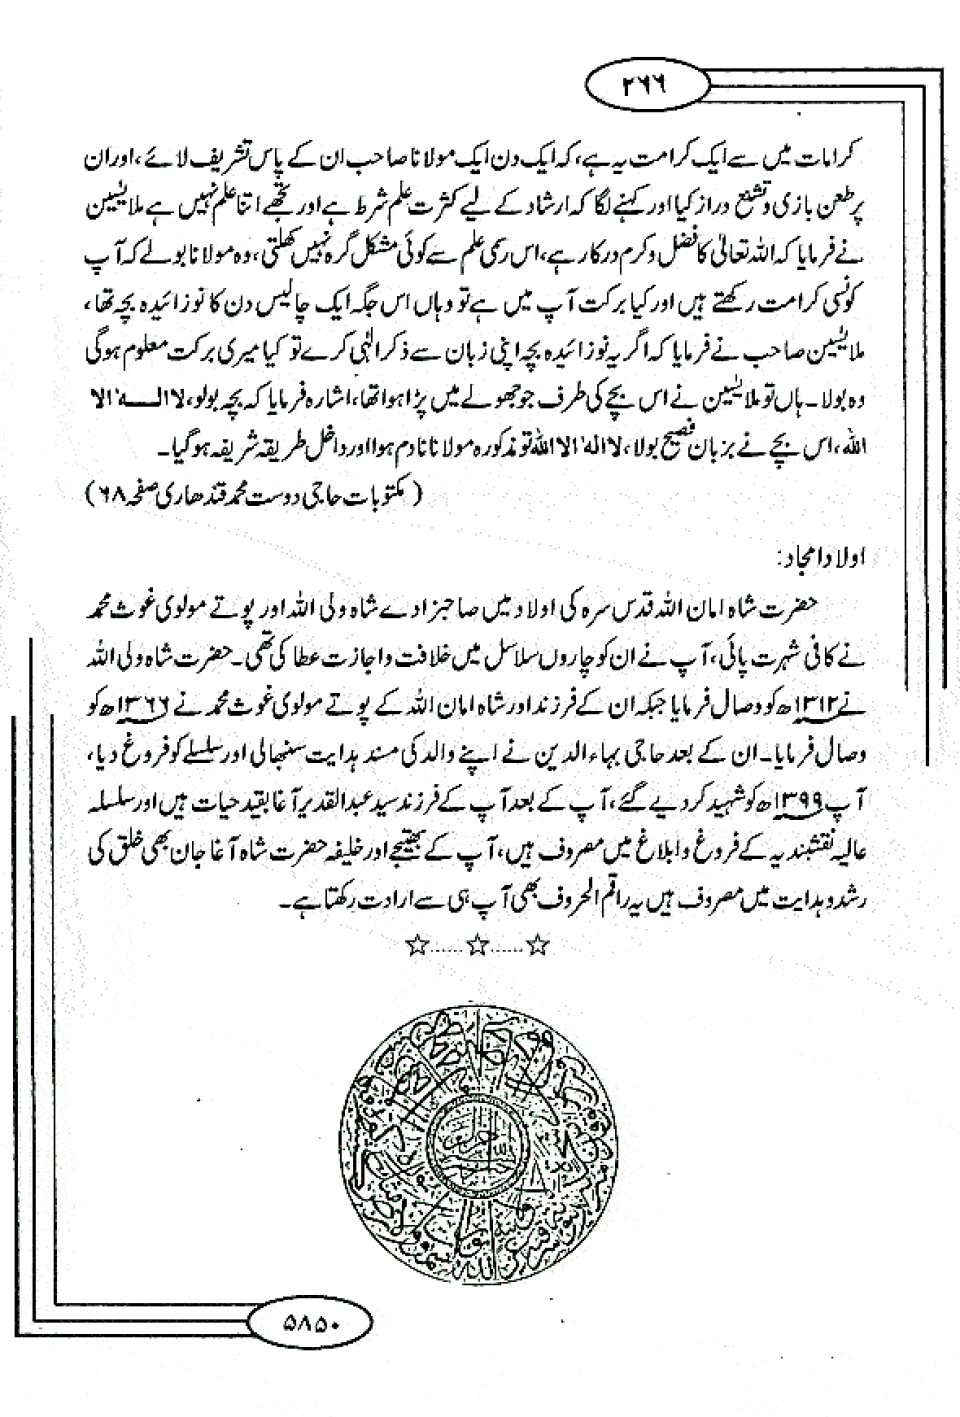 ۲۶۶
کرامات میں سے ایک کرامت یہ ہے، کہ ایک دن ایک مولانا صاحب ان کے پاس تشریف لائے، اور ان
پر طعن بازی و تشنیع دراز کیا اور کہنے لگا کہ ارشاد کے لیے کثرت علم شرط ہے اور تجھے اتنا علم نہیں ہے ملا یٰسین
نے فرمایا کہ اللہ تعالیٰ کا فضل و کرم درکار ہے، اس رسمی علم سے کوئی مشکل گرہ نہیں کھلتی، وہ مولانا بولے کہ آپ
کونسی کرامت رکھتے ہیں اور کیا برکت آپ میں ہے تو وہاں اس جگہ ایک چالیس دن کا نوزائیدہ بچہ تھا،
ملا یٰسین صاحب نے فرمایا کہ اگر یہ نوزائیدہ بچہ اپنی زبان سے ذکر الٰہی کرے تو کیا میری برکت معلوم ہوگی
وہ بولا۔ ہاں تو ملا یٰسین نے اس بچے کی طرف جو جھولے میں پڑا ہوا تھا، اشارہ فرمایا کہ بچہ بولو، لا الہ الا
اللہ، اس بچے نے بزبان فصیح بولا، لا الہ الا اللہ تو مذکورہ مولانا نادم ہوا اور داخل طریقہ شریفہ ہوگیا۔
(مکتوبات حاجی دوست محمد قندھاری صفحہ ۶۸)
اولاد امجاد:
حضرت شاہ امان اللہ قدس سرہ کی اولاد میں صاحبزادے شاہ ولی اللہ اور پوتے مولوی غوث محمد
نے کافی شہرت پائی، آپ نے ان کو چاروں سلاسل میں خلافت و اجازت عطا کی تھی۔ حضرت شاہ ولی اللہ
نے ۱۳۱۲ھ کو وصال فرمایا جبکہ ان کے فرزند اور شاہ امان اللہ کے پوتے مولوی غوث محمد نے ۱۳۶۶ھ کو
وصال فرمایا۔ ان کے بعد حاجی بہاء الدین نے اپنے والد کی مسند ہدایت سنبھالی اور سلسلے کو فروغ دیا،
آپ ۱۳۹۹ھ کو شہید کر دیے گئے، آپ کے بعد آپ کے فرزند سید عبدالقدیر آغا بقید حیات ہیں اور سلسلہ
عالیہ نقشبندیہ کے فروغ و ابلاغ میں مصروف ہیں، آپ کے بھتیجے اور خلیفہ حضرت شاہ آغا جان بھی خلق کی
رشد و ہدایت میں مصروف ہیں یہ راقم الحروف بھی آپ ہی سے ارادت رکھتا ہے۔
☆......☆......☆
۵۸۵۰